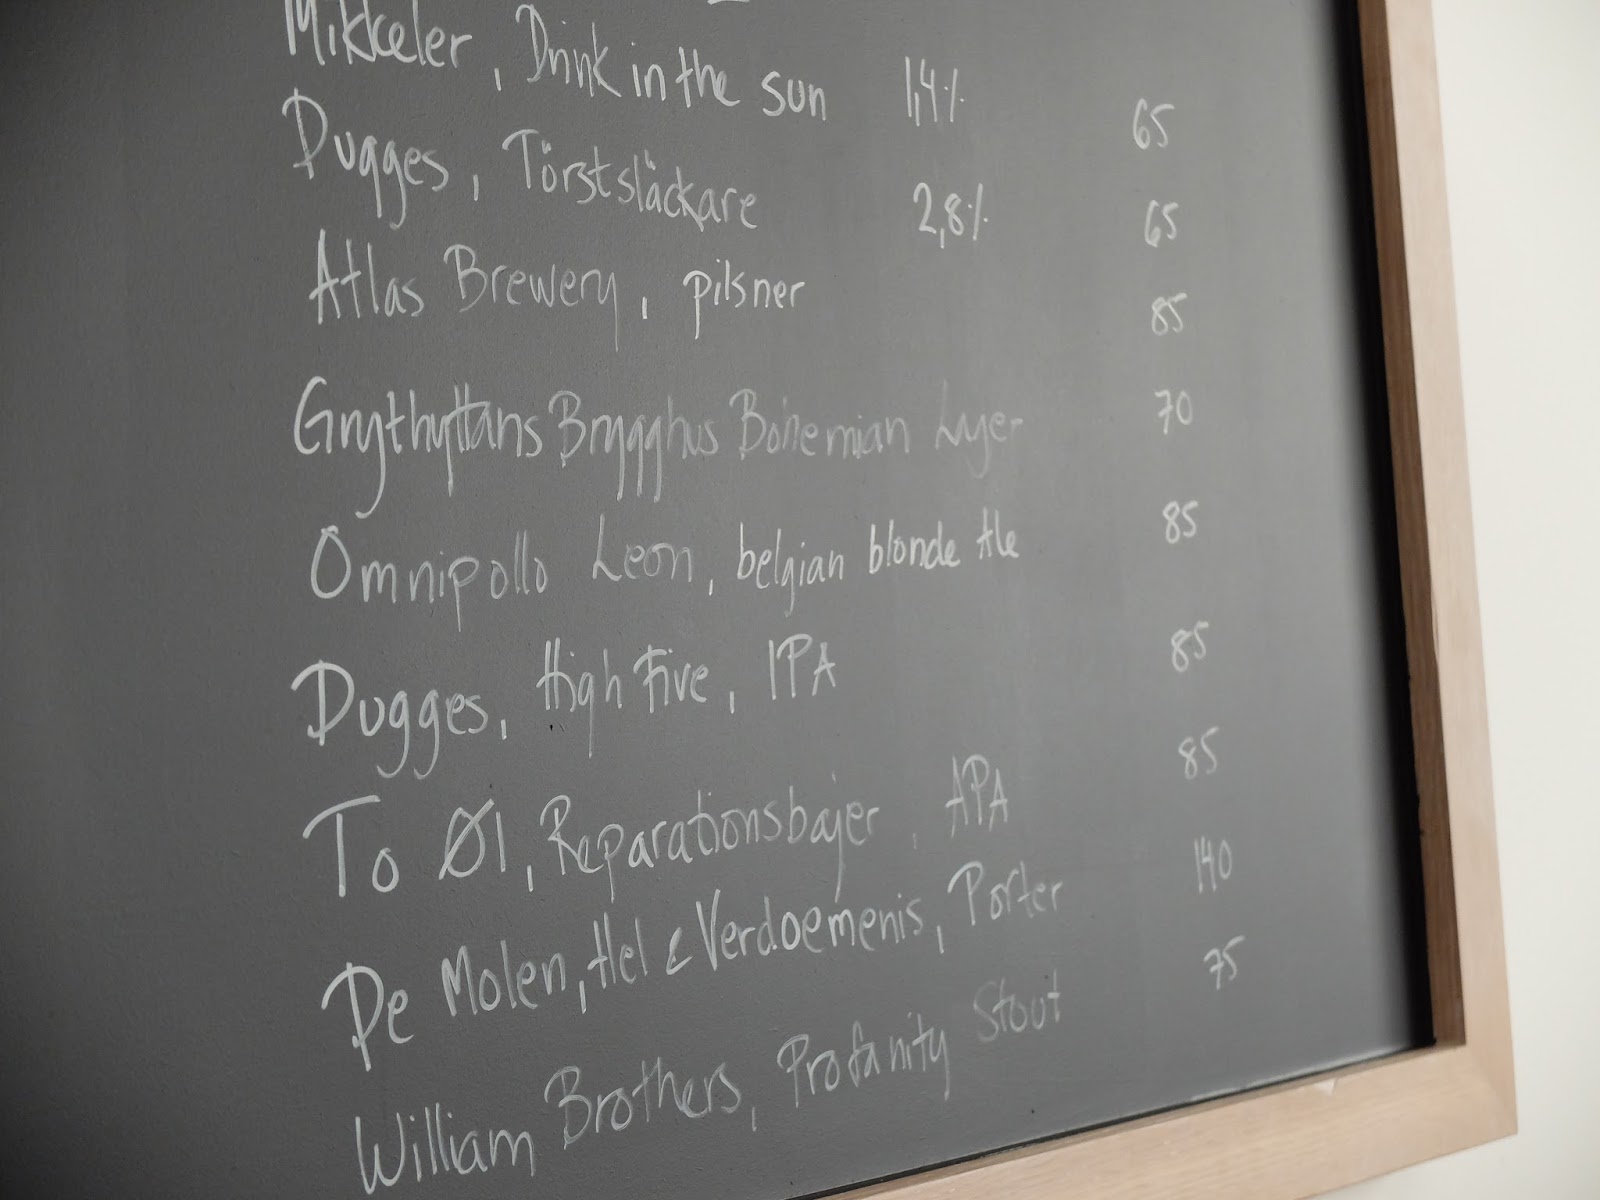 Mikkeler, Drink in the sun 1,4% 65
Dugges, Törstsläckare 2,8% 65
Atlas Brewery, pilsner 85
Grythyttans Brygghus Bohemian Lager 70
Omnipollo Leon, belgian blonde Ale 85
Dugges, High Five, IPA 85
To Øl, Reparationsbajer, APA 85
De Molen, Hel & Verdoemenis, Porter 140
William Brothers, Profanity Stout 75